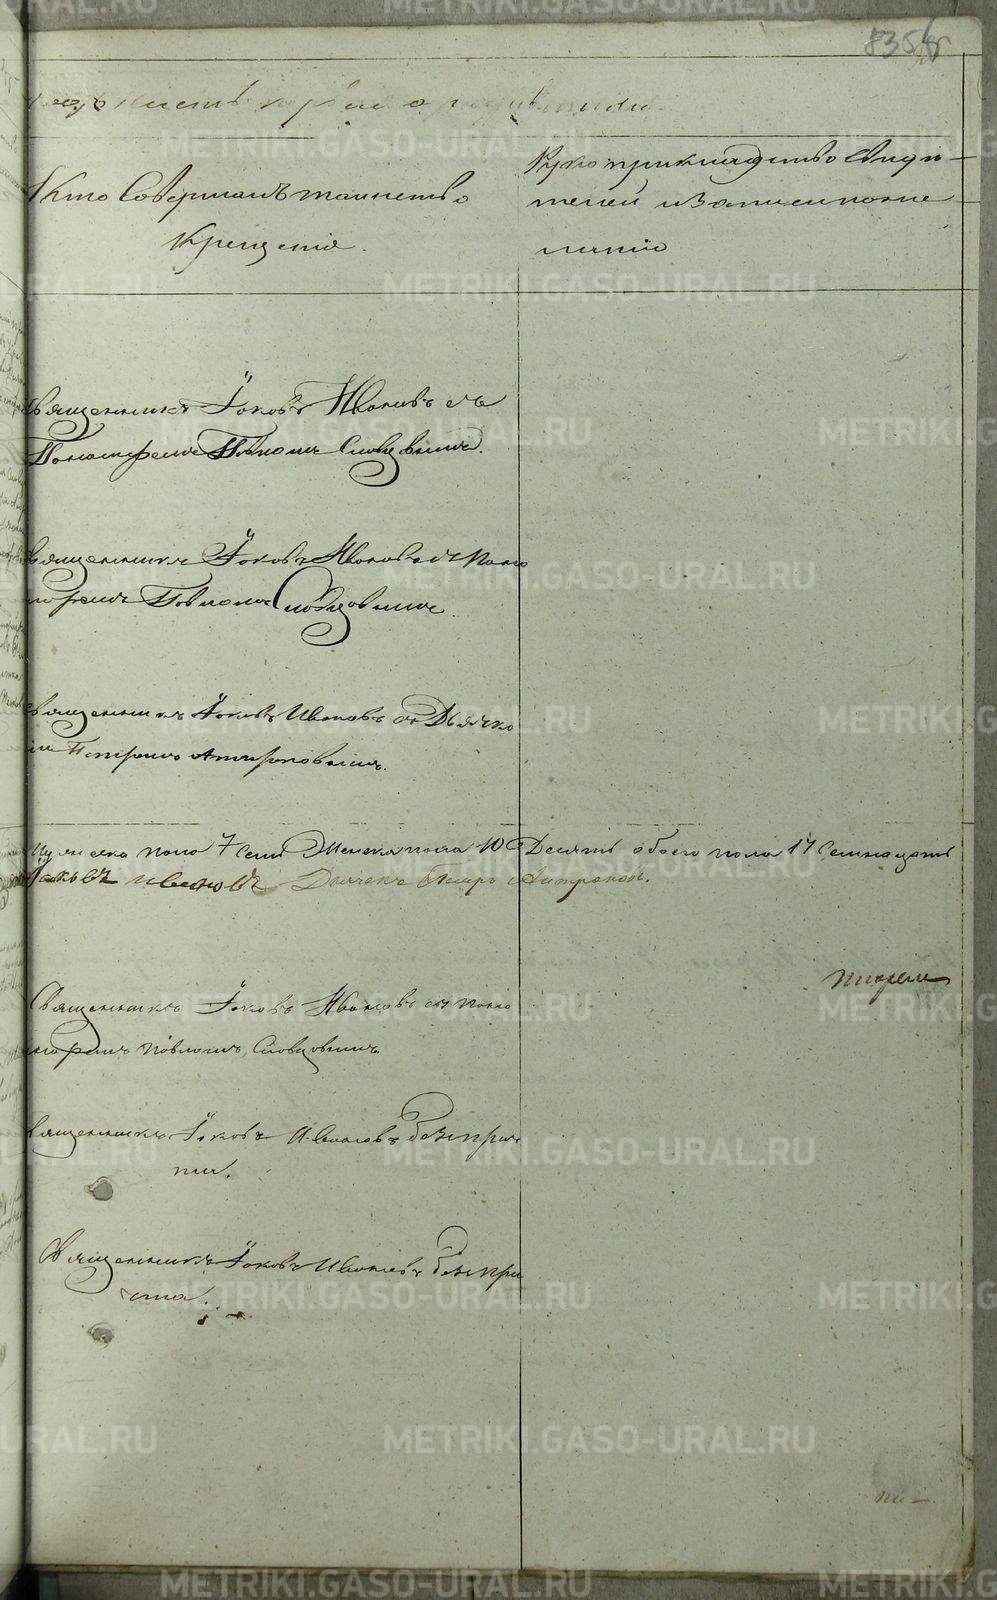 835
года часть первая о родившихся
Кто Совершалъ таинство
Крещенія.
Рукоприкладство Свидѣ-
телей и Записи по же
ланію
Священникъ Іаковъ Ивановъ съ
Пономаремъ Павломъ Словцовымъ.
Священникъ Іаковъ Ивановъ съ Поно
маремъ Павломъ Словцовымъ.
Священникъ Іаковъ Ивановъ съ Дьячко
мъ Петромъ Антроповымъ.
Мужеска пола 7 Семь Женска пола 10 Десять обоего пола 17 Семнацать
Іаковъ Ивановъ Дьячекъ Петръ Антроповъ.
Священникъ Іаковъ Ивановъ съ Поно
маремъ Павломъ Словцовымъ.
Священникъ Іаковъ Ивановъ безъ прич
та.
Священникъ Іаковъ Ивановъ безъ при
чта.
METRIKI.GASO-URAL.RU